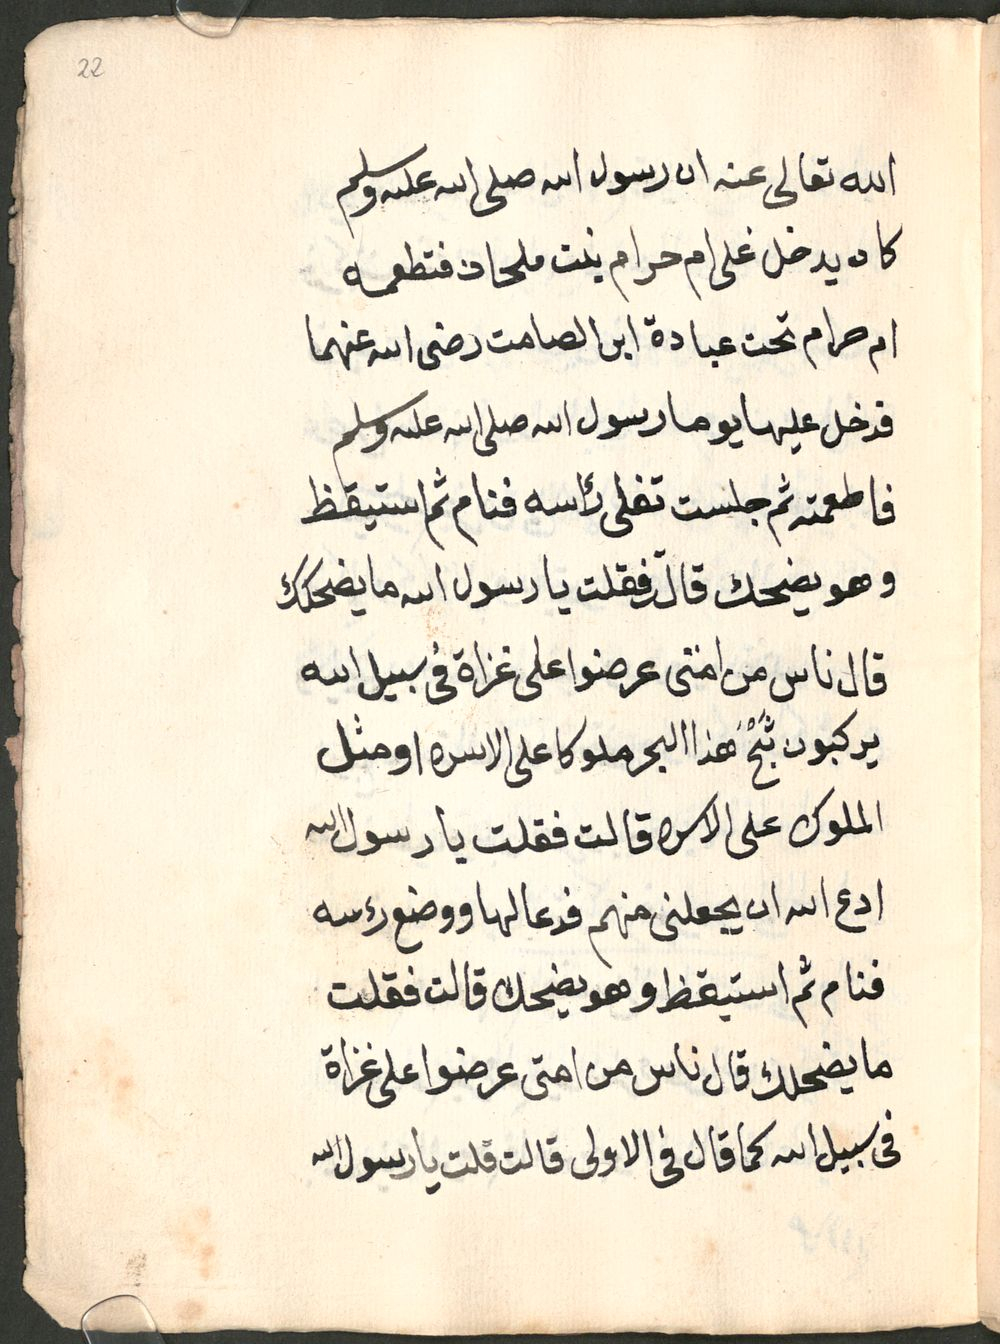 22
الله تعالى عنه ان رسول الله صلى الله عليه وسلم
كان يدخل على ام حرام بنت ملحان فتطعمه
ام حرام تحت عبادة ابن الصامت رضى الله عنهما
فدخل عليها يوما رسول الله صلى الله عليه وسلم
فاطعمته ثم جلست تفلى رأسه فنام ثم استيقظ
وهو يضحك قال فقلت يا رسول الله ما يضحكك
قال ناس من امتى عرضوا على غزاة فى سبيل الله
يركبون ثَبَجْ هَذا البحر ملوكا على الاسره او مثل
الملوك على الاسره قالت فقلت يا رسول الله
ادع الله ان يجعلنى منهم فدعا لها ووضع رءسه
فنام ثم استيقظ وهو يضحك قالت فقلت
ما يضحكك قال ناس من امتى عرضوا على غزاة
فى سبيل الله كما قال فى الاولى قالت قلت يا رسول الله